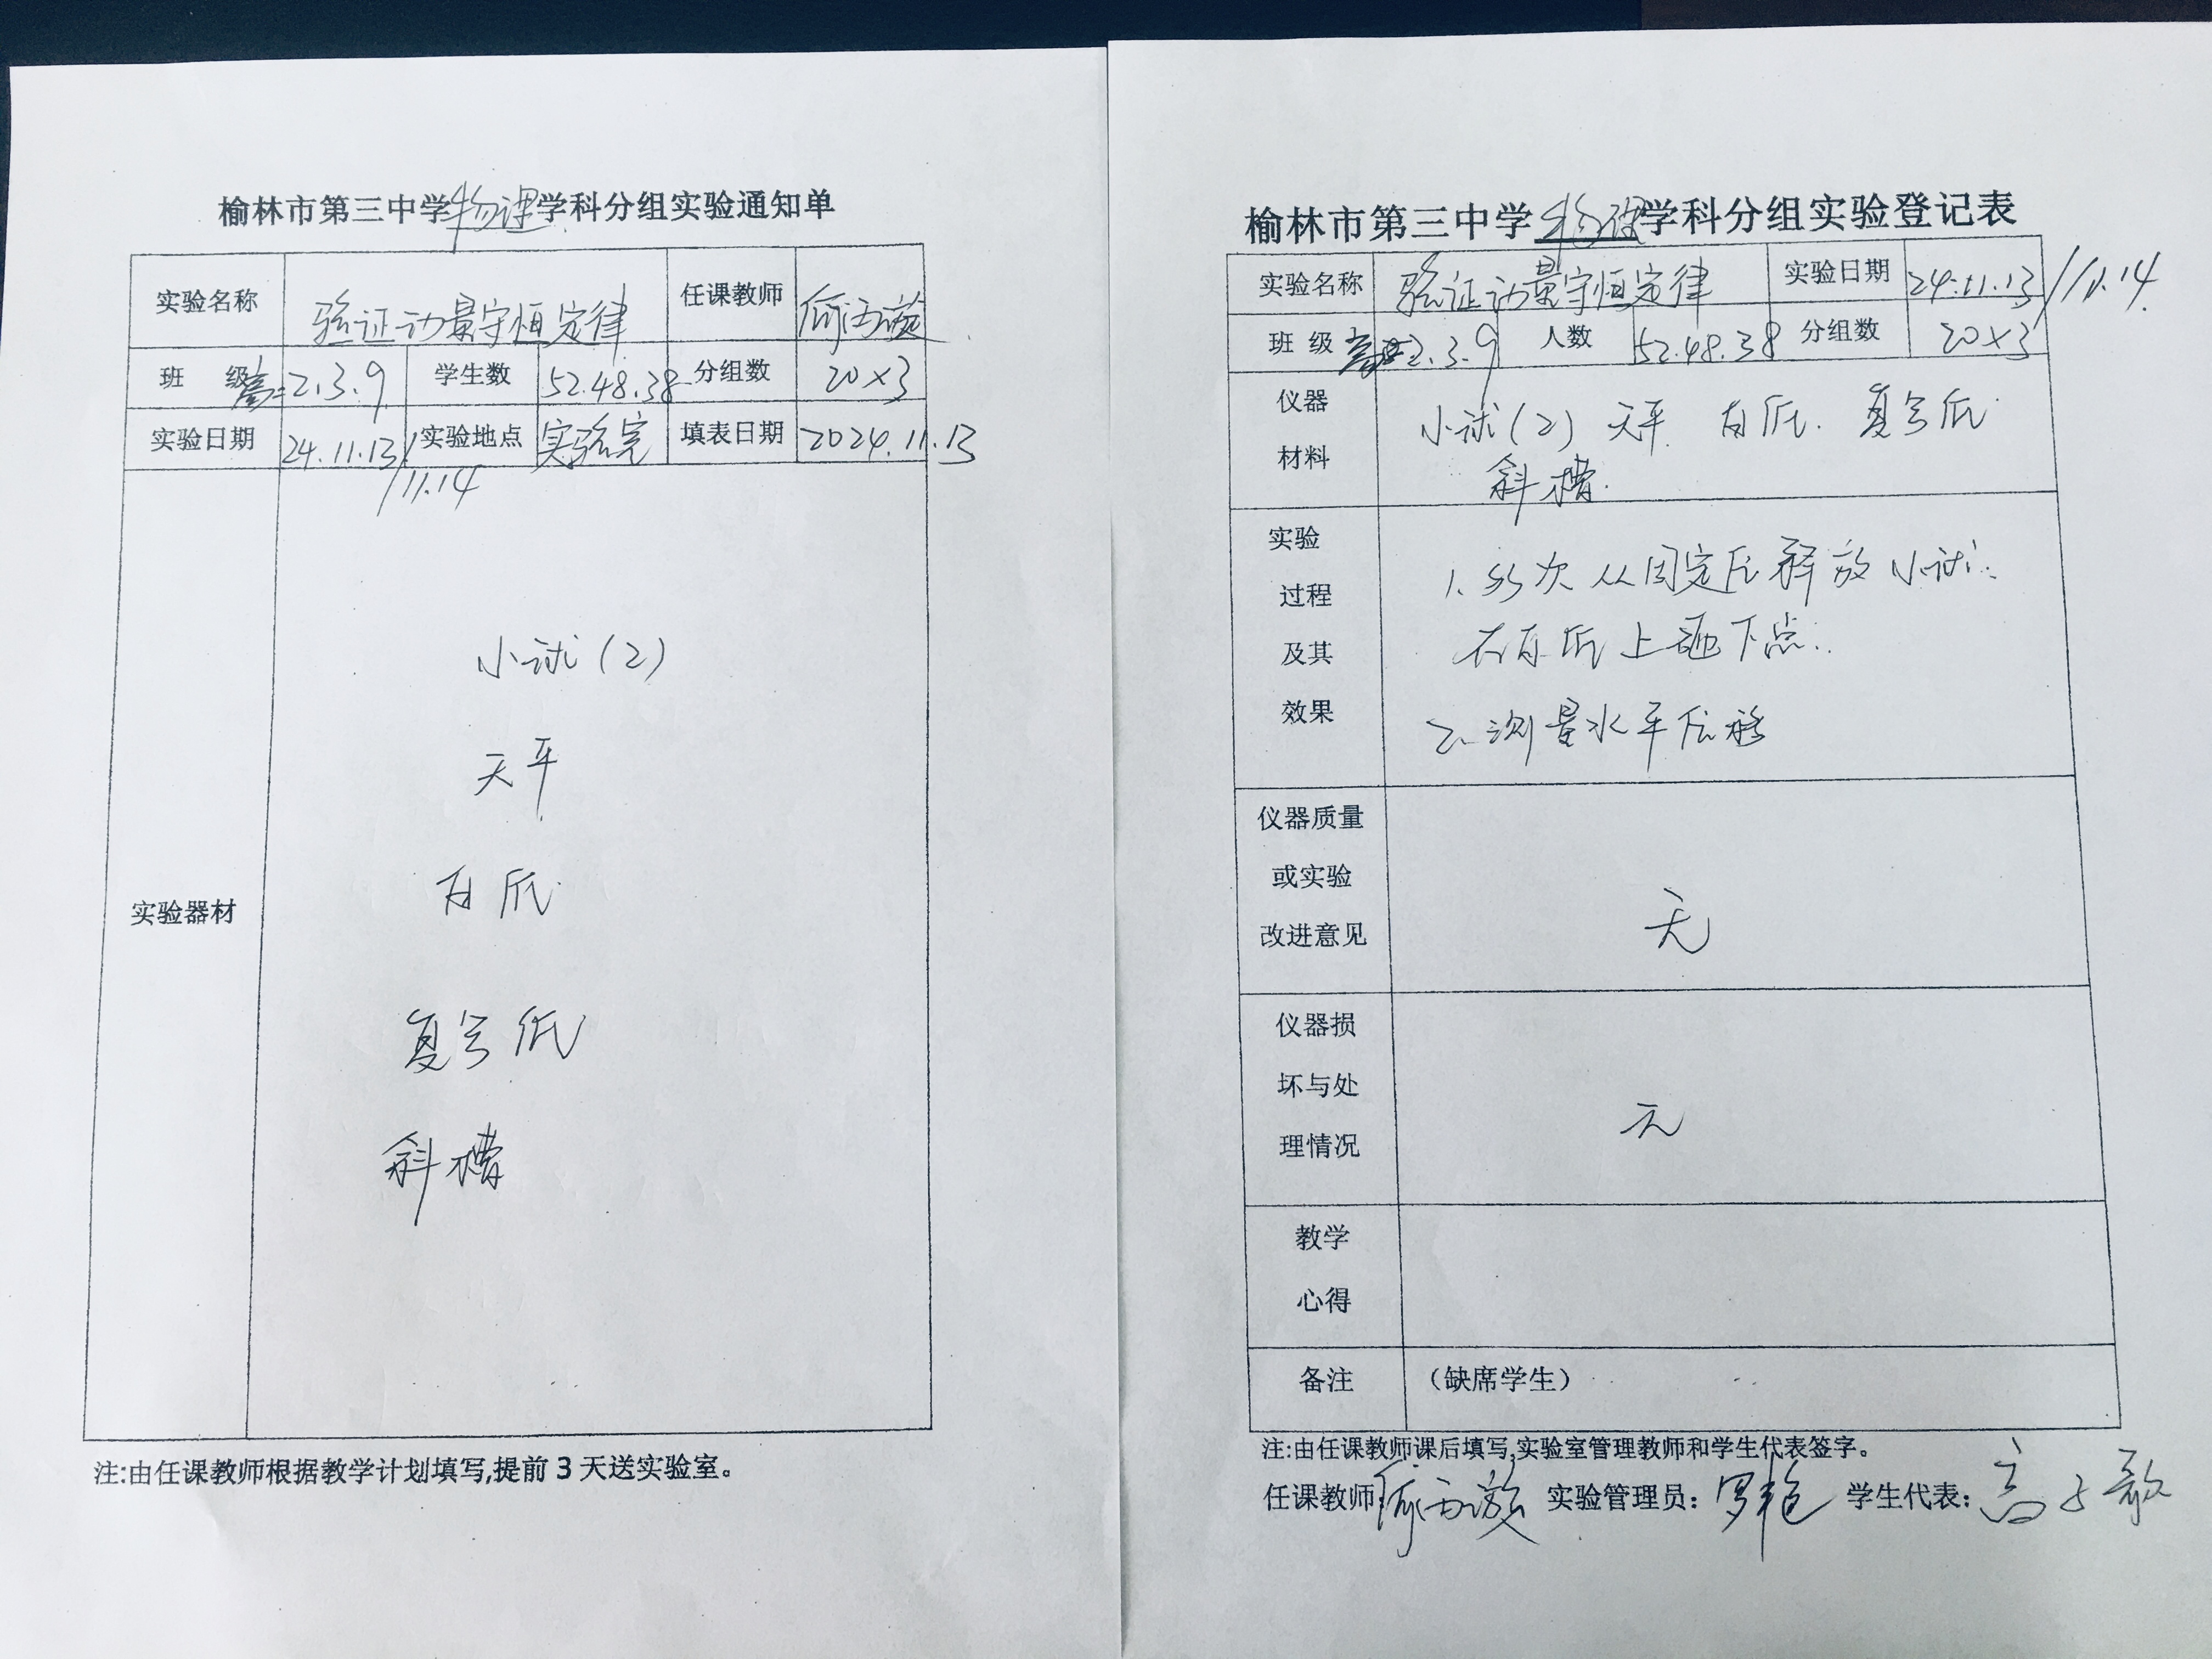 榆林市第三中学物理学科分组实验通知单
实验名称 验证动量守恒定律 任课教师
班 级 高二2.3.9 学生数 52.48.38 分组数 20×3
实验日期 24.11.13/11.14 实验地点 实验室 填表日期 2024.11.13
实验器材
小球(2)
天平
白纸
复写纸
斜槽
注:由任课教师根据教学计划填写,提前3天送实验室。
榆林市第三中学物理学科分组实验登记表
实验名称 验证动量守恒定律 实验日期 24.11.13/11.14
班 级 高二2.3.9 人数 52.48.38 分组数 20×3
仪器材料 小球(2) 天平 白纸 复写纸
斜槽
实验过程及其效果
1. 多次从固定位释放小球
在白纸上砸下点
2. 测量水平位移
仪器质量或实验改进意见 无
仪器损坏与处理情况 无
教学心得
备注 (缺席学生)
注:由任课教师课后填写,实验室管理教师和学生代表签字。
任课教师: 实验管理员:罗艳 学生代表:高